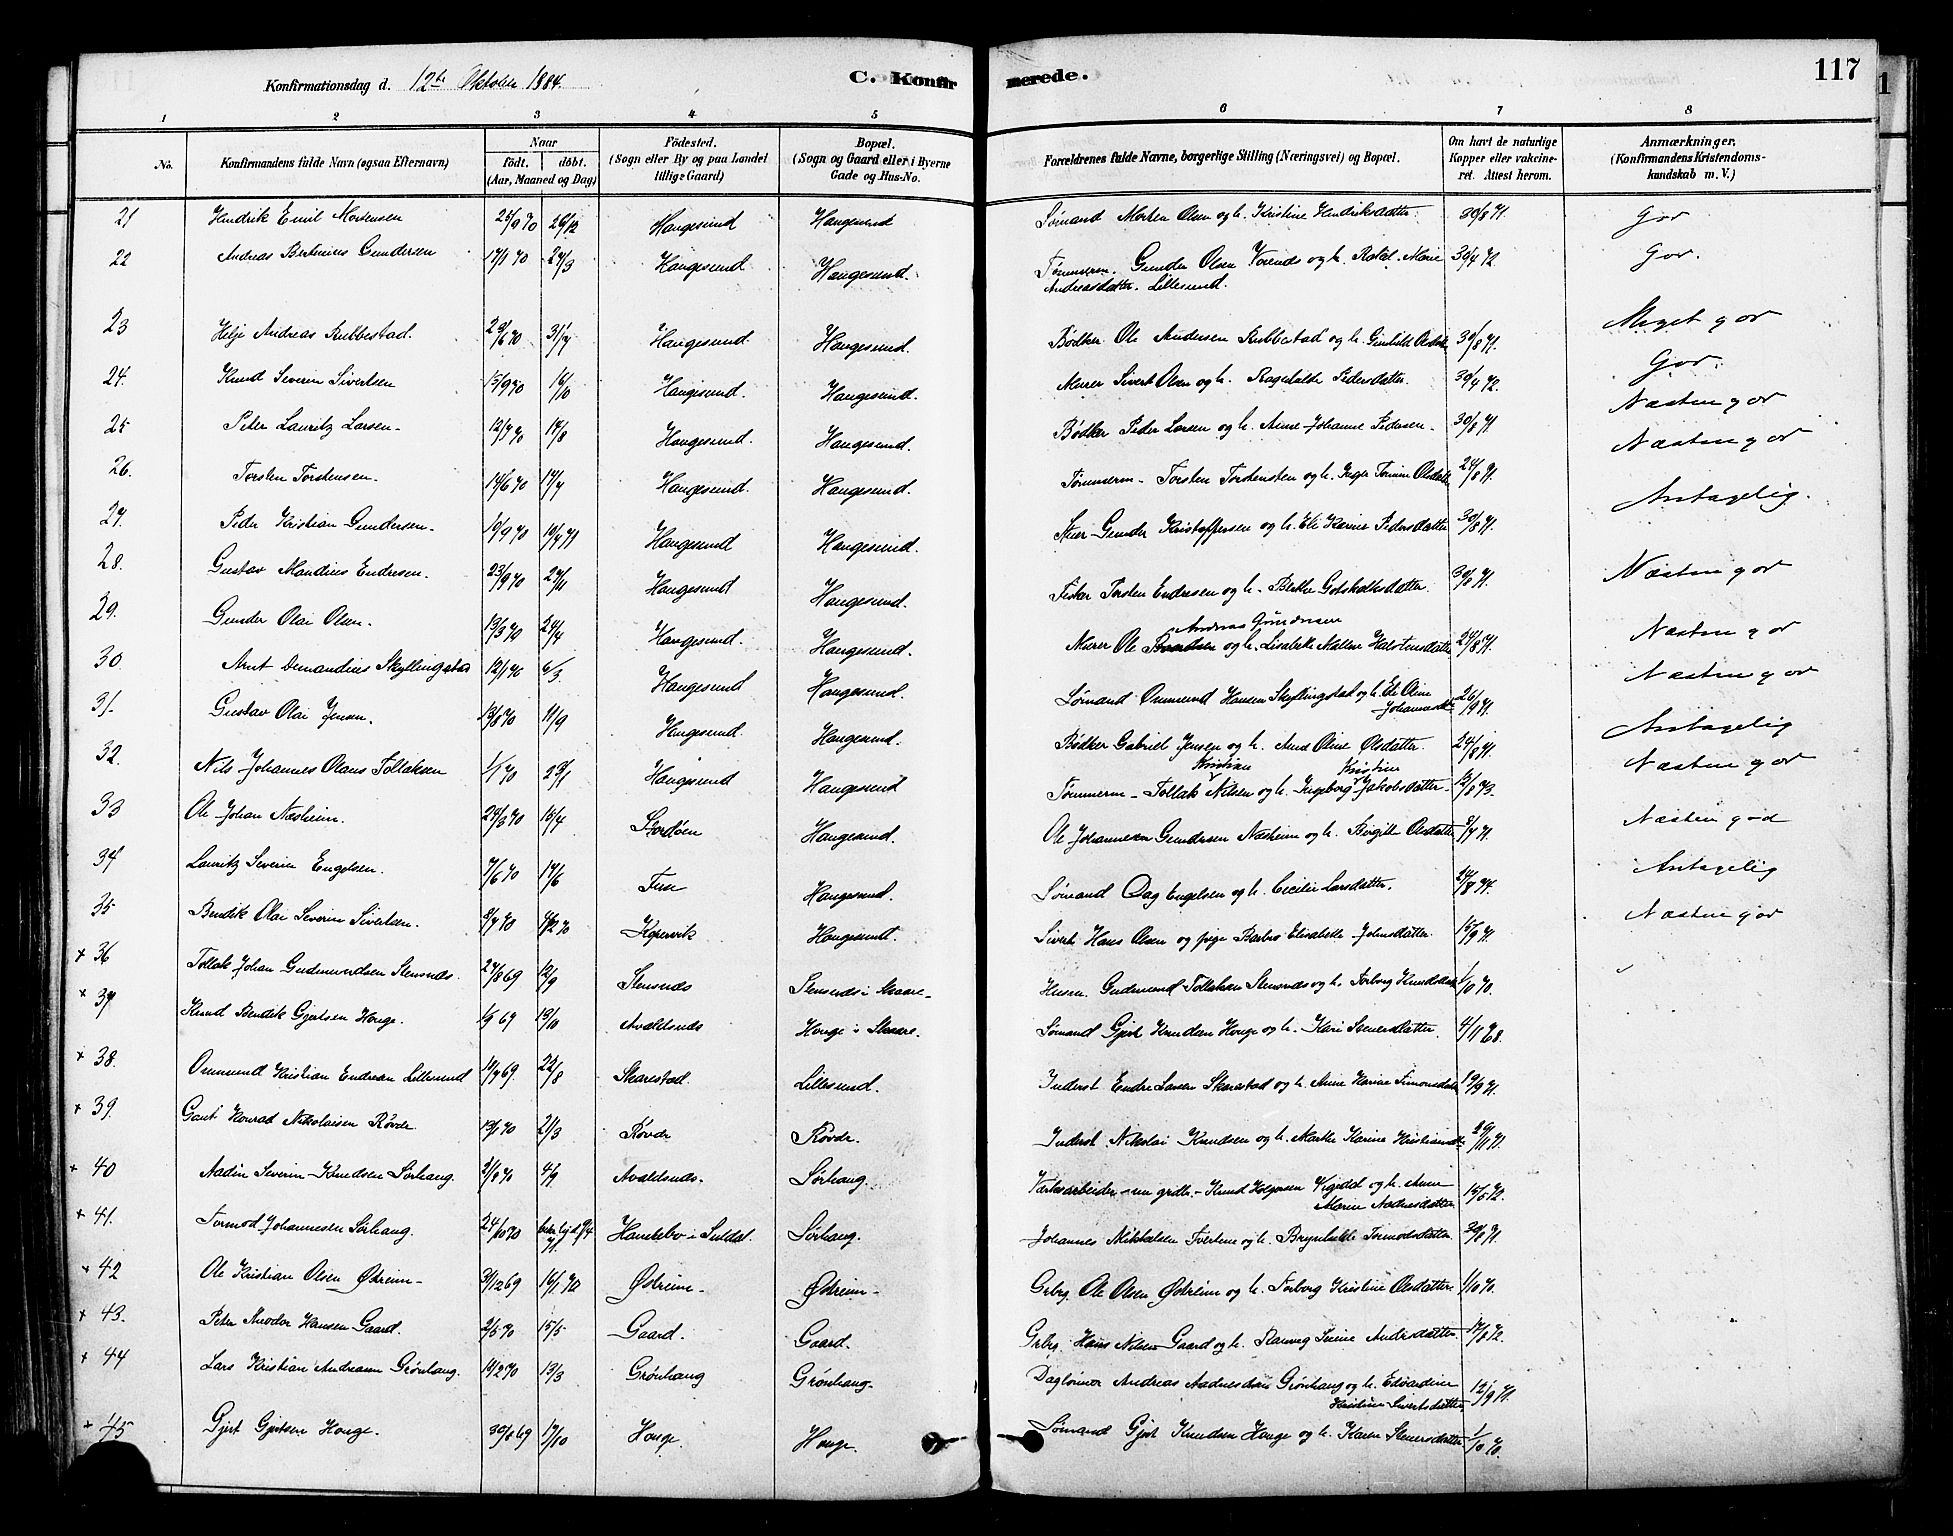 Konfirmationsdag d. 12te Oktober 1884. C. Konfirmerede. 117
1 2 3 4 5 6 7 8
No. Konfirmandens fulde Navn (ogsaa Efternavn) Naar født. døbt. (Aar, Maaned og Dag) Fødested. (Sogn eller By og paa Landet tillige Gaard) Bopæl. (Sogn og Gaard eller i Byerne Gade og Hus-No. Forældrenes fulde Navne, borgerlige Stilling (Næringsvei) og Bopæl. Om havt de naturlige Kopper eller vakcineret. Attest herom. Anmærkninger. (Konfirmandens Kristendomskundskab m. V.)
21 Hendrik Emil Mortensen 25/9 70 26/12 Haugesund Haugesund Sømand Morten Olsen og h. Kristine Hendriksdatter. 30/8 71. Gor
22 Andreas Bertinius Gundersen 17/1 70 27/3 Haugesund Haugesund. Tømmerm. Gunder Olsen Vorends og h. Rakel Marie 30/4 72. Gor.
Andreasdatter. Lillesund.
23 Helje Andreas Rubbestad. 29/6 70 31/7 Haugesund Haugesund. Bødker Ole Andersen Rubbestad og h. Gunhild Olsdtr 30/8 71. Meget gor
24. Knud Severin Sivertsen 15/9 70 16/10 Haugesund. Haugesund. Murer Sivert Olsen og h. Ragnhilde Pedersdatter. 30/4 72. Gor.
25 Peter Lauritz Larsen 12/7 70 14/8 Haugesund. Haugesund. Bødker Peder Larsen og h. Anne Johanne Pedersen. 30/8 71. Næsten gor
26. Torsten Torstensen. 14/6 70 17/7 Haugesund. Haugesund. Tømmerm. Torsten Torstensten og h. Inger Tomine Olsdatter 24/8 71. Næsten gor
27. Peder Kristian Gundersen. 19/9 70 10/4 71 Haugesund Haugesund. Gunder Kristoffersen og h. Eli Karine Pedersdatter 30/8 71. Antagelig.
28. Gustav Mandius Endresen. 23/9 70 27/11 Haugesund Haugesund. Fisker Torsten Endresen og h. Berthe Gotskalksdatter. 30/8 71. Næsten gor
29. Gunder Olai Olsen. 13/3 70 24/4 Haugesund. Haugesund. Murer Ole Andreas Gundersen og h. Lisabeth Malene Halstensdatter 24/8 71. Næsten gor
30 Arnt Demandius Skyllingstad 12/1 70 6/3 Haugesund Haugesund. Sømand Ommund Hansen Skyllingstad og h. Eli Oline 26/9 71. Næsten gor
Johannesdtr
31. Gustav Olai Jensen. 13/8 70 11/9 Haugesund. Haugesund. Bødker Gabriel Jensen og h. Anne Oline Olsdatter. 24/8 71. Antagelig
32. Nils Johannes Olaus Tollaksen 1/1 70 23/1 Haugesund Haugesund Tømmerm. Tollak Kristian Nilsen og h. Ingeborg Kristine Jakobsdatter 12/8 73. Næsten gor
33 Ole Johan Næsheim. 24/3 70 15/4 Stordøen Haugesund. Ole Johannesen Gundersen Næsheim og h. Birgitte Olsdatter 5/7 71. Næsten god
34 Lauritz Severin Engelsen. 7/6 70 19/6 Haugesund. Sømand Dag Engelsen og h. Cecilie Larsdatter. 24/8 74. Antagelig
35 Bendik Olai Severin Sivertsen. 8/7 70 Kopervik Haugesund. Sivert Hans Olsen og pige Barbro Elisabeth Johnsdatter. 15/9 71. Næsten gor
x 36 Tollak Johan Gudmundsen Stensnes. 27/8 69 12/9 Stensnes Stensnes i Skaare. Husm. Gudmund Tollaksen Stensnes og h. Torborg Knudsdatter 1/10 70.
x 37 Knud Bendik Gjertsen Hauge. 1/9 69 13/10 Avaldsnes Hauge i Skaare. Sømand Gjert Knudsen Hauge og h. Kari Stenersdatter 4/11 68.
x 38. Ommund Kristian Endresen Lillesund 19/7 69. 22/8 Skarestad. Lillesund. Inderst Endre Larsen Skarestad og h. Anne Karine Simonsdatter 19/9 71.
x 39. Gaut Konrad Nikolaisen Røvde 13/1 70 21/3 Røvde Røvde. Inderst Nikolai Knudsen og h. Marthe Karine Kristiansdtr 29/11 71.
x 40 Nadin Severin Knudsen Sørhaug. 3/8 70 4/9 Avaldsnes. Sørhaug. Værksarbeider Knud Holgersen og h. Anne 15/5 72.
Marie Aadnesdatter
x 41. Tormod Johannesen Sørhaug. 24/10 70 Suldal. Sørhaug. Johannes Mikkelsen Tvertene og h. Brynhilde Tormodsdatter. 30/8 71.
x 42 Ole Kristian Olsen Østreim 31/12 69 16/1 70 Østreim Østreim Grbrg. Ole Olsen Østreim og h. Torborg Kristine Olsdatter. 1/10 70.
x 43. Peter Theodor Hansen Gaard. 2/5 70 15/5 Gaard. Gaard. Grbrg. Hans Nilsen Gaard og h. Ranveg Serine Andersdatter. 17/8 72.
x 44 Lars Kristian Andreasen Grønhaug. 14/2 70 13/3 Grønhaug Grønhaug. Dagleiner Andreas Aadnesen Grønhaug og h. Edvardine 12/9 71.
Kristine Sivertsdatter
x 45 Gjert Gjertsen Hauge. 30/8 69 17/10 Hauge. Hauge. Sømand Gjert Knudsen Hauge og h. Karen Stenersdatter. 1/10 70.